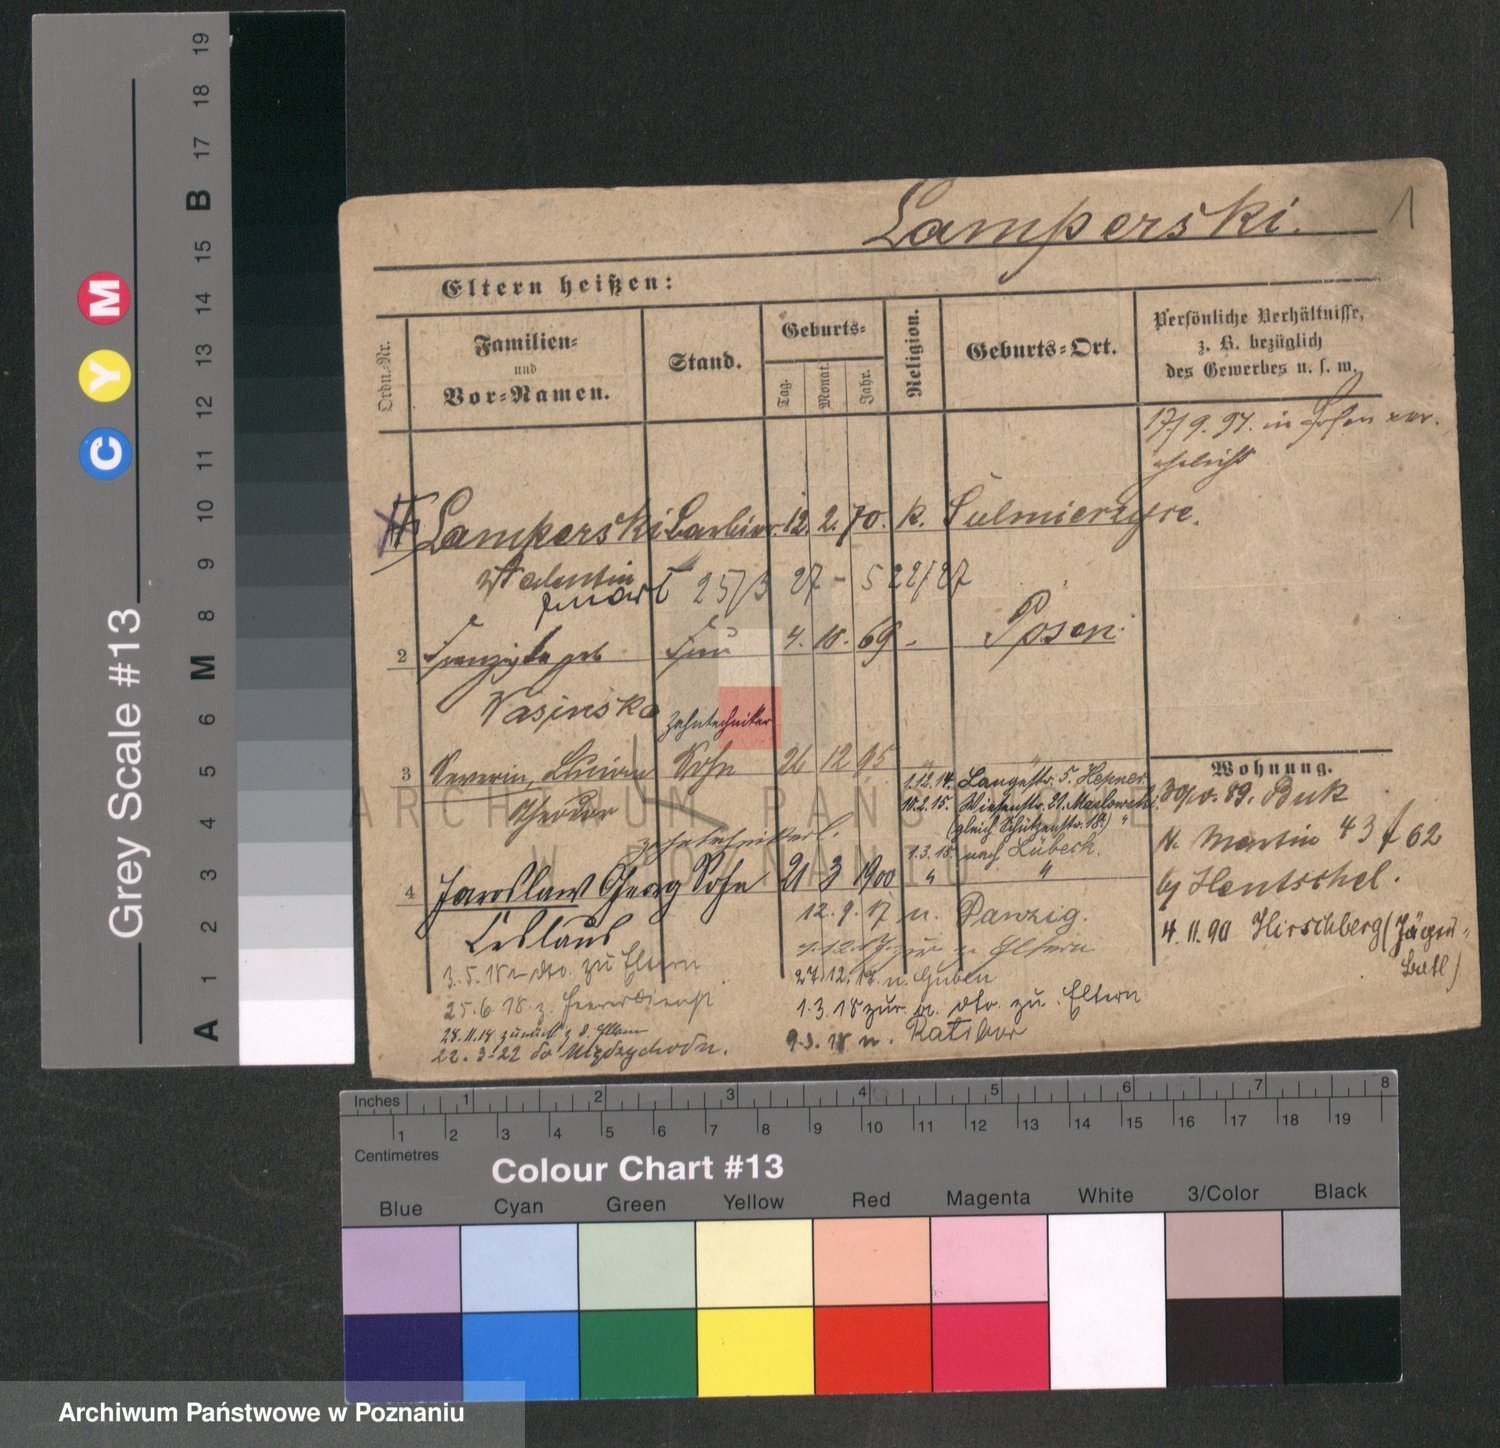 Lamperski.
1
Eltern heißen:
Ordn.-Nr.
Familien-
und
Vor-Namen.
Stand.
Geburts-
Tag.
Monat.
Jahr.
Religion.
Geburts-Ort.
Persönliche Verhältnisse,
z. B. bezüglich
des Gewerbes u. s. w.
17/9. 94. in Posen ver-
ehelicht
Lamperski Barbier. 12. 2. 70. k. Sulmierzyce.
Valentin
zmarł 25/3 27 - 522/27
2 Franziska geb Frau 4. 10. 69 - Posen
Wasinska
Zahntechniker
3 Severin, Lucian Sohn 26 12 95 "
Theodor
1.12.14. Langestr. 5. Hepner
10.2.15. Wiesenstr. 21. Maslowski
(gleich Schützenstr. 18.) "
1.3.18. nach Lübeck.
4 Jaroslaw Georg Sohn 21 3 1900 " "
Ceslaus
12. 9. 17 n. Danzig.
1.12.17. zur n Eltern
27.12.17. n. Guben
1.3.18 zur. a. dto. zu. Eltern
9.3.18 n. Ratibor
3.5.18 dto. zu Eltern
25.6.18. z. Heeresdienst
28.11.18 zurück z d. Eltern
22.3.22 do Międzychodu.
Wohnung.
89. Buk
St. Martin 43 f 62
by Hentschel.
4. 11. 90 Hirschberg (Jäger-
Batl)
ARCHIWUM PAŃSTWOWE
W POZNANIU
Grey Scale #13
C Y M
A 1 2 3 4 5 6 M 8 9 10 11 12 13 14 15 B 17 18 19
Inches 1 2 3 4 5 6 7 8
1 2 3 4 5 6 7 8 9 10 11 12 13 14 15 16 17 18 19
Centimetres
Colour Chart #13
Blue Cyan Green Yellow Red Magenta White 3/Color Black
Archiwum Państwowe w Poznaniu